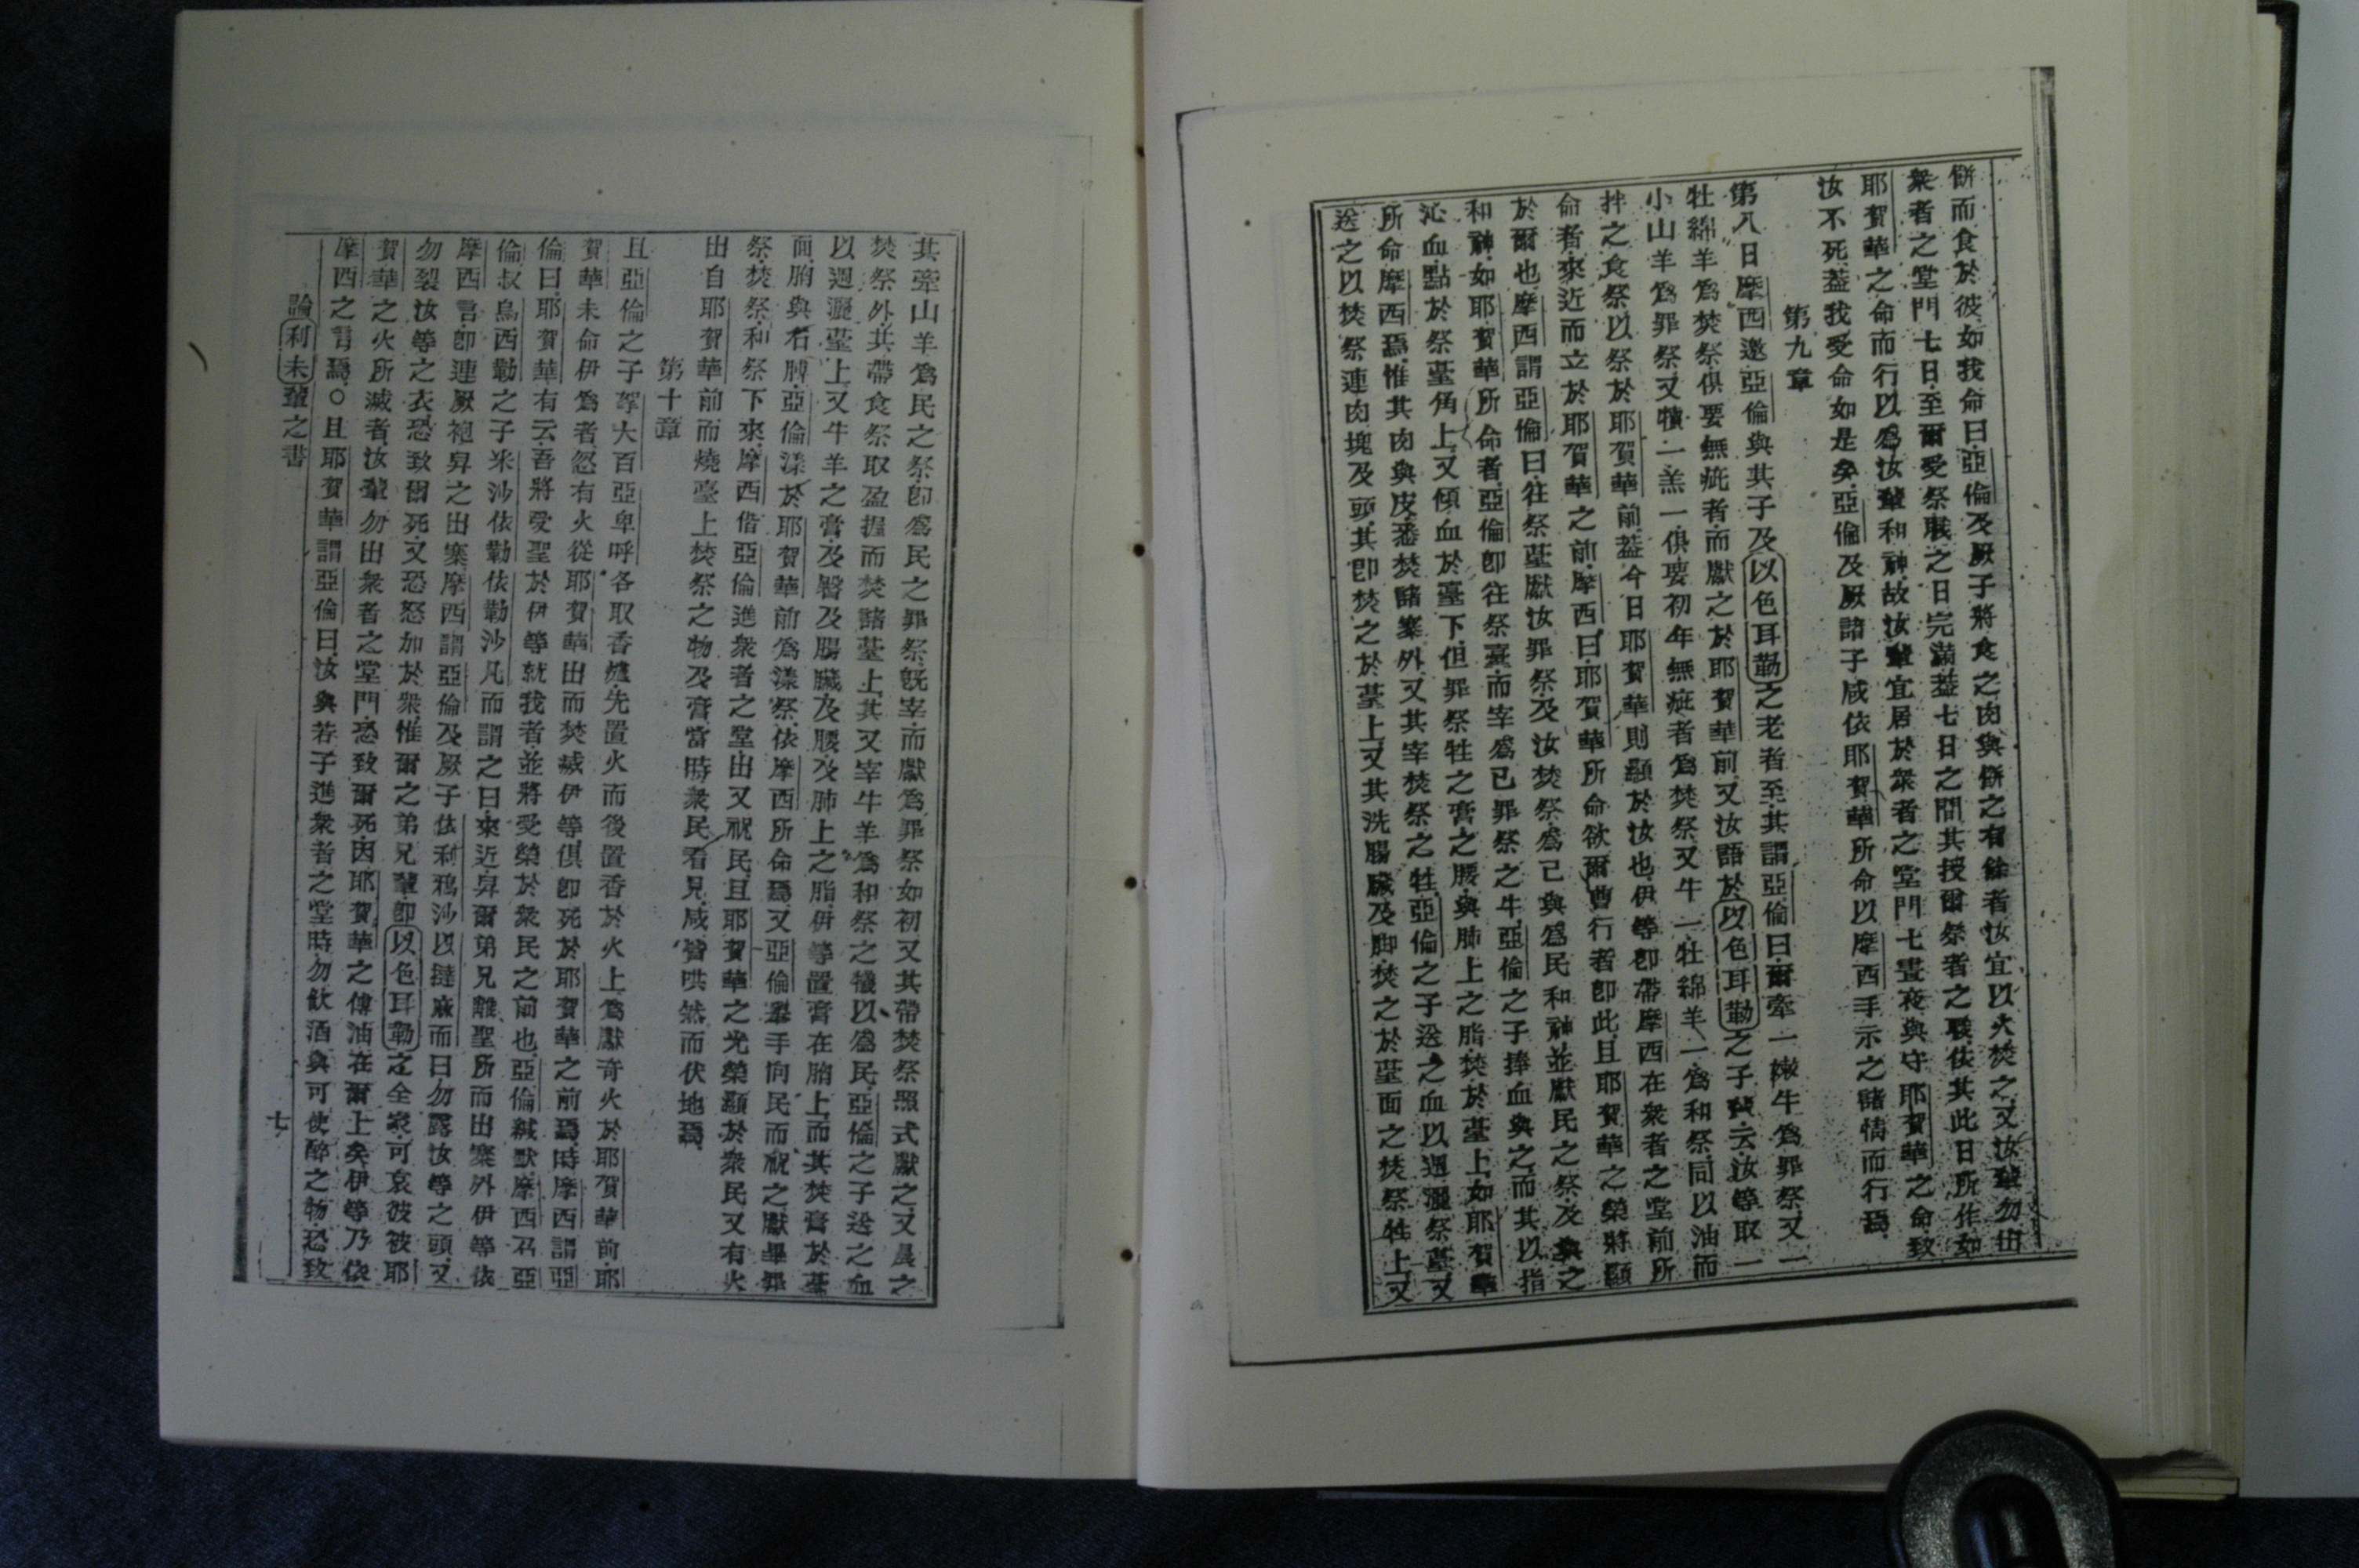 餅而食於彼如我命曰亞倫及厥子將食之肉與餅之有餘者汝宜以火焚之又汝輩勿出
衆者之堂門七日至爾受祭職之日完滿蓋七日之間其授爾祭者之職依其此日所作如
耶賀華之命而行以爲汝輩和神故汝輩宜居於衆者之堂門七晝夜與守耶賀華之命致
汝不死蓋我受命如是矣亞倫及厥諸子咸依耶賀華所命以摩西手示之諸情而行焉
第九章
第八日摩西邀亞倫與其子及以色耳勒之老者至其謂亞倫曰爾牽一嫩牛爲罪祭又一
牡綿羊爲焚祭俱要無疵者而獻之於耶賀華前又汝語於以色耳勒之子輩云汝等取一
小山羊爲罪祭又犢一羔一俱要初年無疵者爲焚祭又牛一牡綿羊一爲和祭同以油而
拌之食祭以祭於耶賀華前蓋今日耶賀華則顯於汝也伊等卽帶摩西在衆者之堂前所
命者來近而立於耶賀華之前摩西曰耶賀華所命欲爾曹行者卽此且耶賀華之榮將顯
於爾也摩西謂亞倫曰往祭臺獻汝罪祭及汝焚祭爲己與爲民和神並獻民之祭及與之
和神如耶賀華所命者亞倫卽往祭臺而宰爲已罪祭之牛亞倫之子捧血與之而其以指
沁血點於祭臺角上又傾血於臺下但罪祭牲之膏之腰與肺上之脂焚於臺上如耶賀華
所命摩西焉惟其肉與皮悉焚諸寨外又其宰焚祭之牲亞倫之子送之血以週灑祭臺又
送之以焚祭連肉塊及頭其卽焚之於臺上又其洗腸臟及脚焚之於臺面之焚祭牲上又
其牽山羊爲民之祭卽爲民之罪祭旣宰而獻爲罪祭如初又其帶焚祭照式獻之又晨之
焚祭外其帶食祭取盈握而焚諸臺上其又宰牛羊爲和祭之犧以爲民亞倫之子送之血
以週灑臺上又牛羊之膏及臀及腸臟及腰及肺上之脂伊等置膏在胸上而其焚膏於臺
而胸與右膊亞倫漾於耶賀華前爲漾祭依摩西所命焉又亞倫舉手向民而祝之獻畢罪
祭焚祭和祭下來摩西偕亞倫進衆者之堂出又祝民且耶賀華之光榮顯於衆民又有火
出自耶賀華前而燒臺上焚祭之物及膏當時衆民看見咸皆哄然而伏地焉
第十章
且亞倫之子拏大百亞卑呼各取香爐先置火而後置香於火上爲獻奇火於耶賀華前耶
賀華未命伊爲者忽有火從耶賀華出而焚滅伊等俱卽死於耶賀華之前焉時摩西謂亞
倫曰耶賀華有云吾將受聖於伊等就我者並將受榮於衆民之前也亞倫緘默摩西召亞
倫叔烏西勒之子米沙依勒依勒沙凡而謂之曰來近舁爾弟兄離聖所而出寨外伊等依
摩西言卽連厥袍舁之出寨摩西謂亞倫及厥子依利鴉沙以撻麻而曰勿露汝等之頭又
勿裂汝等之衣恐致爾死又恐怒加於衆惟爾之弟兄輩卽以色耳勒之全家可哀彼被耶
賀華之火所滅者汝輩勿出衆者之堂門恐致爾死因耶賀華之傅油在爾上矣伊等乃依
摩西之言焉○且耶賀華謂亞倫曰汝與若子進衆者之堂時勿飮酒與可使醉之物恐致
論利未輩之書
七